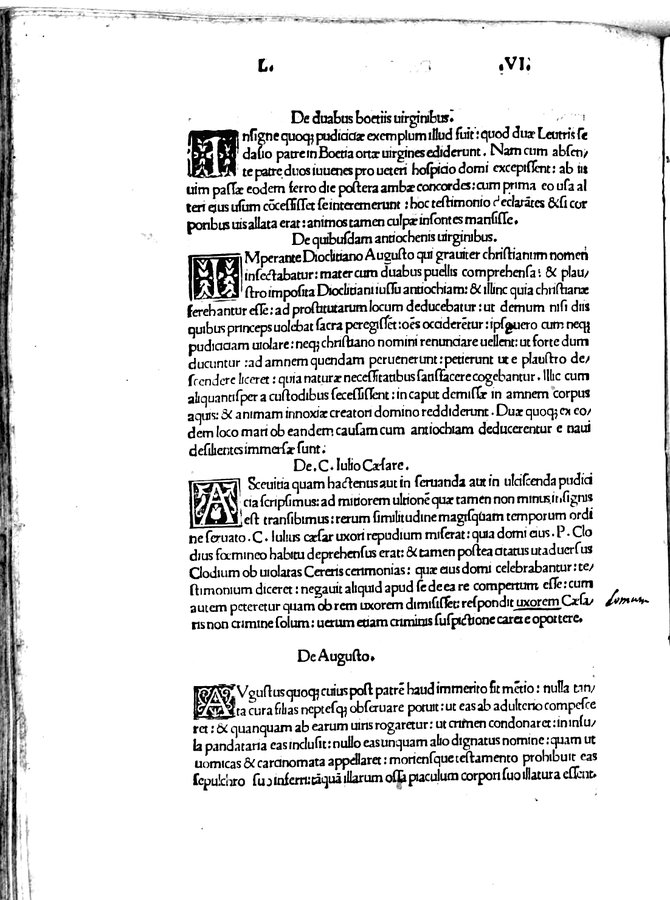 L. .VI.
De duabus boetiis uirginibus.
Insigne quoq; pudiciciæ exemplum illud fuit: quod duæ Leutris se
dasio patre in Boetia ortæ uirgines ediderunt. Nam cum absen/
te patre duos iuuenes pro ueteri hospicio domi excepissent: ab iis
uim passæ eodem ferro die postera ambæ concordes: cum prima eo usa al
teri eius usum cõcessisset se interemerunt: hoc testimonio declarãtes & si cor
poribus uis allata erat: animos tamen culpæ insontes mansisse.
De quibusdam antiochenis uirginibus.
IMperante Dioclitiano Augusto qui grauiter christianum nomen
insectabatur: mater cum duabus puellis comprehensa: & plau/
stro imposita Dioclitiani iussu antiochiam: & illinc quia christianæ
ferebantur esse: ad prostitutarum locum deducebatur: ut demum nisi diis
quibus princeps uolebat sacra peregisset: oẽs occiderẽtur: ipsę uero cum neq;
pudiciciam uiolare: neq; christiano nomini renunciare uellent: ut forte dum
ducuntur: ad amnem quendam peruenerunt: petierunt ut e plaustro de/
scendere liceret: quia naturæ necessitatibus satisfacere cogebantur. Illic cum
aliquantisper a custodibus secessissent: in caput demissæ in amnem corpus
aquis: & animam innoxiæ creatori domino reddiderunt. Duæ quoq; ex eo/
dem loco mari ob eandem causam cum antiochiam deducerentur e naui
desilientes immersæ sunt.
De. C. Iulio Cæsare.
A Sceuitia quam hactenus aut in seruanda aut in ulciscenda pudici
cia scripsimus: ad mitiorem ultionẽ quæ tamen non minus insignis
est transibimus: rerum similitudine magisquam temporum ordi
ne seruato. C. Iulius cæsar uxori repudium miserat: quia domi eius. P. Clo
dius fœmineo habitu deprehensus erat: & tamen postea citatus ut aduersus
Clodium ob uiolatas Cereris cerimonias: quæ eius domi celebrabantur: te/
stimonium diceret: negauit aliquid apud se de ea re compertum esse: cum
autem peteretur quam ob rem uxorem dimisisset: respondit uxorem Cæsa/
ris non crimine solum: uerum etiam criminis suspictione carere oportere.
domum
De Augusto.
AVgustus quoq; cuius post patrẽ haud immerito fit mẽtio: nulla tan/
ta cura filias neptesq; obseruare potuit: ut eas ab adulterio compesce
ret: & quanquam ab earum uiris rogaretur: ut crimen condonaret: in insu/
la pandataria eas inclusit: nullo eas unquam alio dignatus nomine: quam ut
uomicas & carcinomata appellaret: moriensque testamento prohibuit eas
sepulchro suo inferri: tãquã illarum ossa piaculum corpori suo illatura essent.